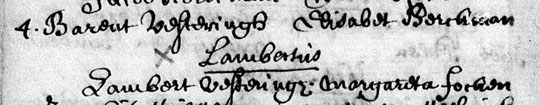 4. Barent Vesteringh Elisabet Berckman
Lambertus
Lambert Vestering. Margareta Focken